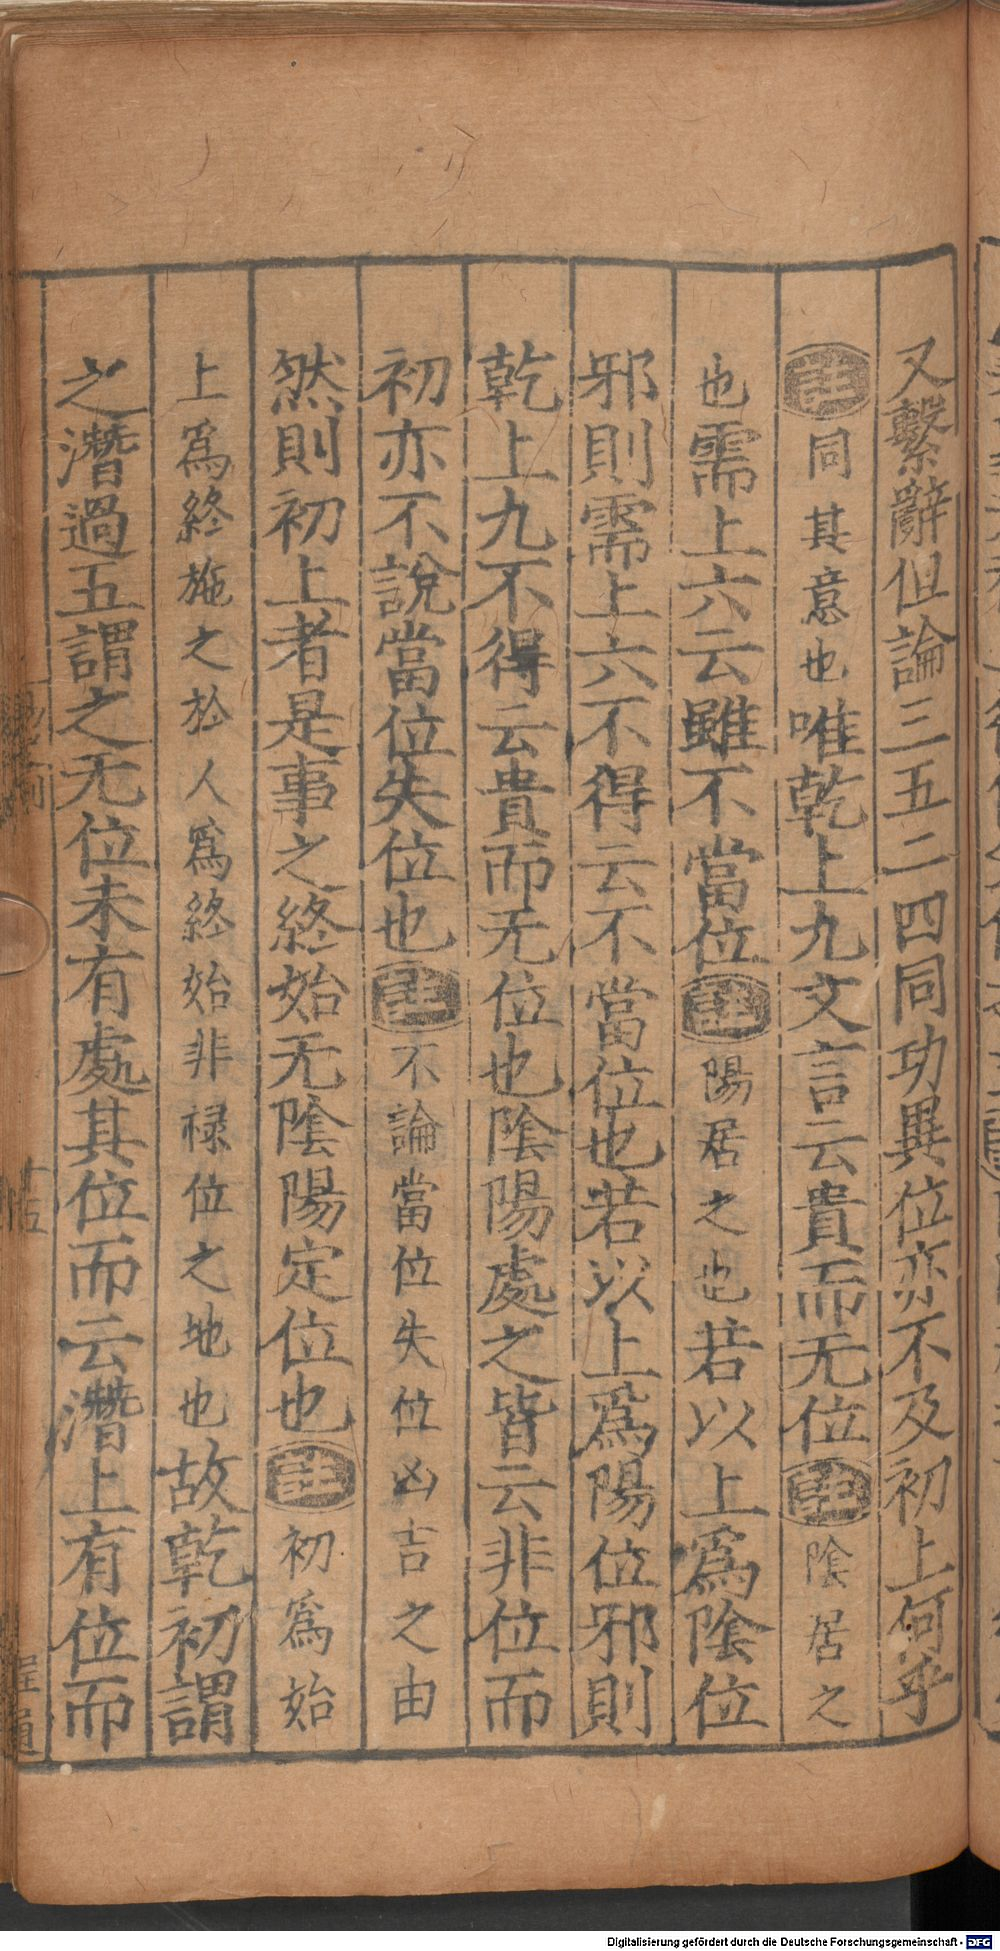 又繫辭但論三五二四同功異位亦不及初上何乎
註同其意也唯乾上九文言云貴而无位註陰居之
也需上六云雖不當位註陽居之也若以上爲陰位
邪則需上六不得云不當位也若以上爲陽位邪則
乾上九不得云貴而无位也陰陽處之皆云非位而
初亦不說當位失位也註不論當位失位凶吉之由
然則初上者是事之終始无陰陽定位也註初爲始
上爲終施之於人爲終始非祿位之地也故乾初謂
之潛過五謂之无位未有處其位而云潛上有位而
Digitalisierung gefördert durch die Deutsche Forschungsgemeinschaft - DFG